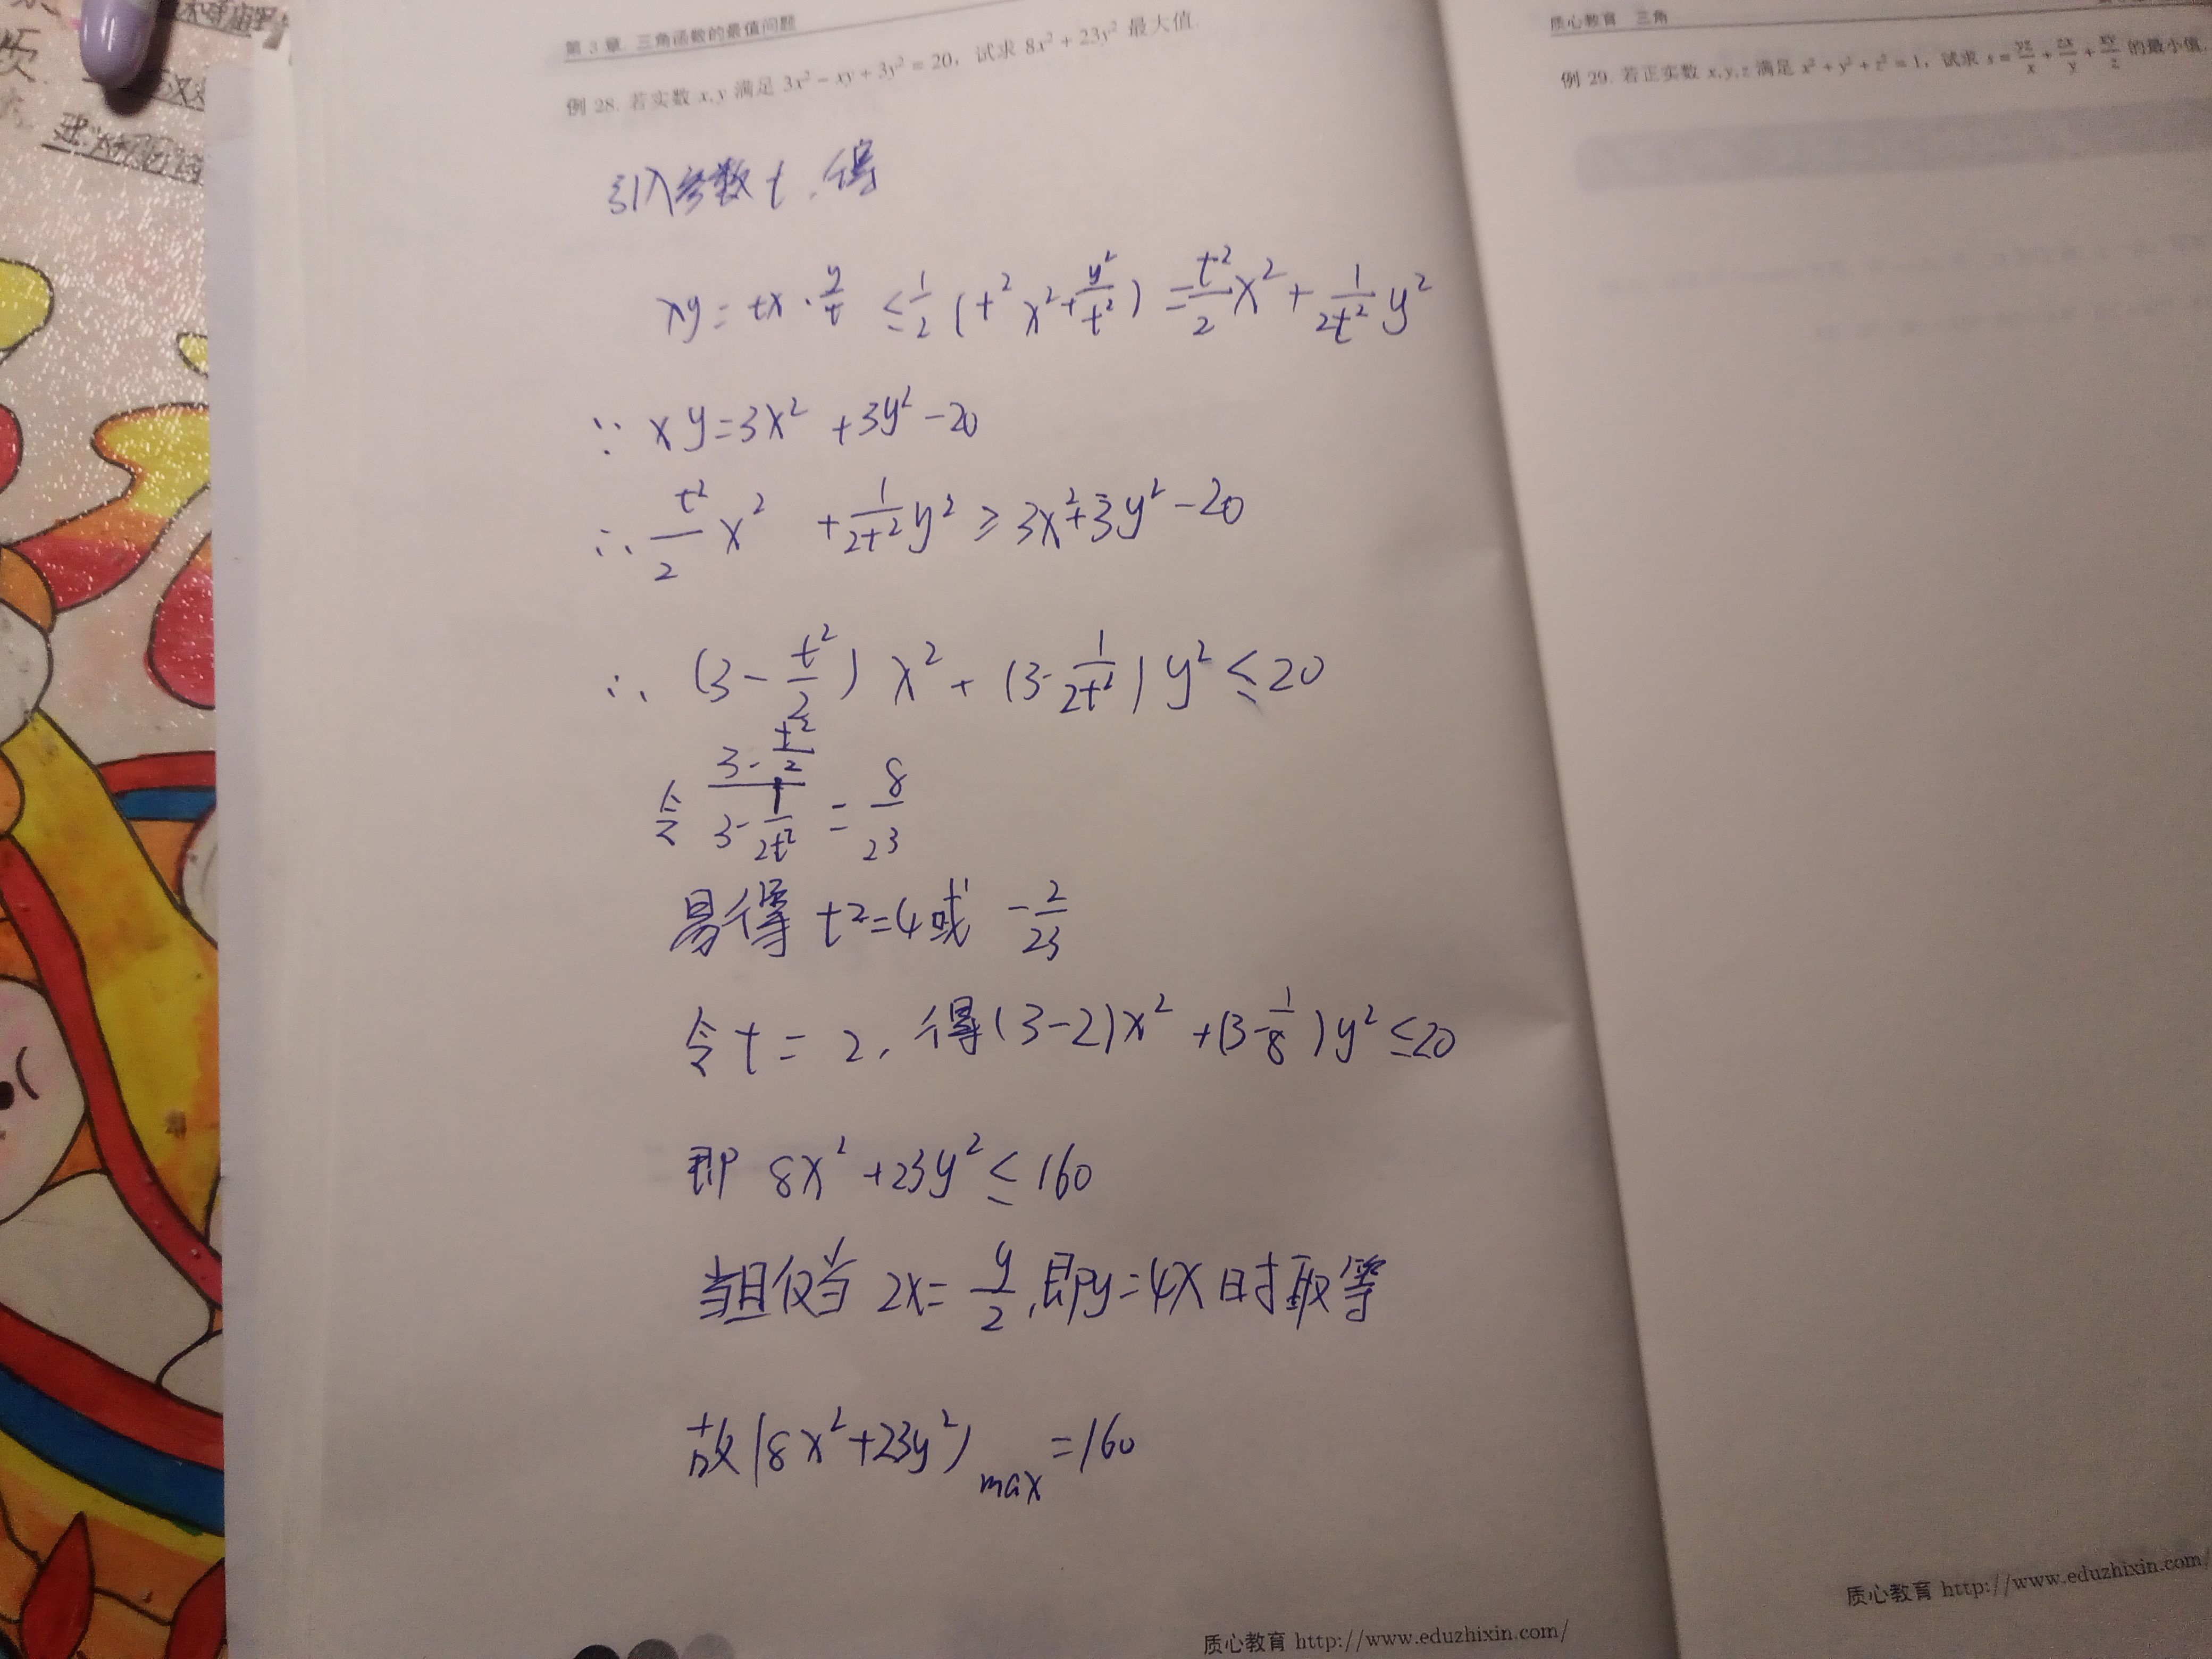 第 3 章 三角函数的最值问题
例 28. 若实数 x,y 满足 3x² − xy + 3y² = 20，试求 8x² + 23y² 最大值.
引入参数 t，得
xy = tx · y/t ≤ 1/2 (t²x² + y²/t²) = t²/2 x² + 1/2t² y²
∵ xy = 3x² + 3y² − 20
∴ t²/2 x² + 1/2t² y² ≥ 3x² + 3y² − 20
∴ (3 − t²/2) x² + (3 − 1/2t²) y² ≤ 20
令 (3 − t²/2)/(3 − 1/2t²) = 8/23
易得 t² = 4 或 −2/23
令 t = 2, 得 (3−2)x² + (3−1/8)y² ≤ 20
即 8x² + 23y² ≤ 160
当且仅当 2x = y/2, 即 y = 4x 时取等
故 (8x² + 23y²)max = 160
质心教育 http://www.eduzhixin.com/
质心教育 三角
例 29. 若正实数 x,y,z 满足 x² + y² + z² = 1，试求 s = yz/x + zx/y + xy/z 的最小值.
质心教育 http://www.eduzhixin.com/